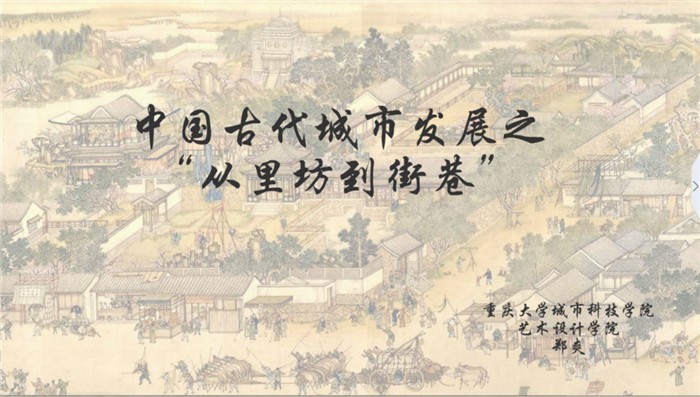 中国古代城市发展之
“从里坊到街巷”
重庆大学城市科技学院
艺术设计学院
郑爽